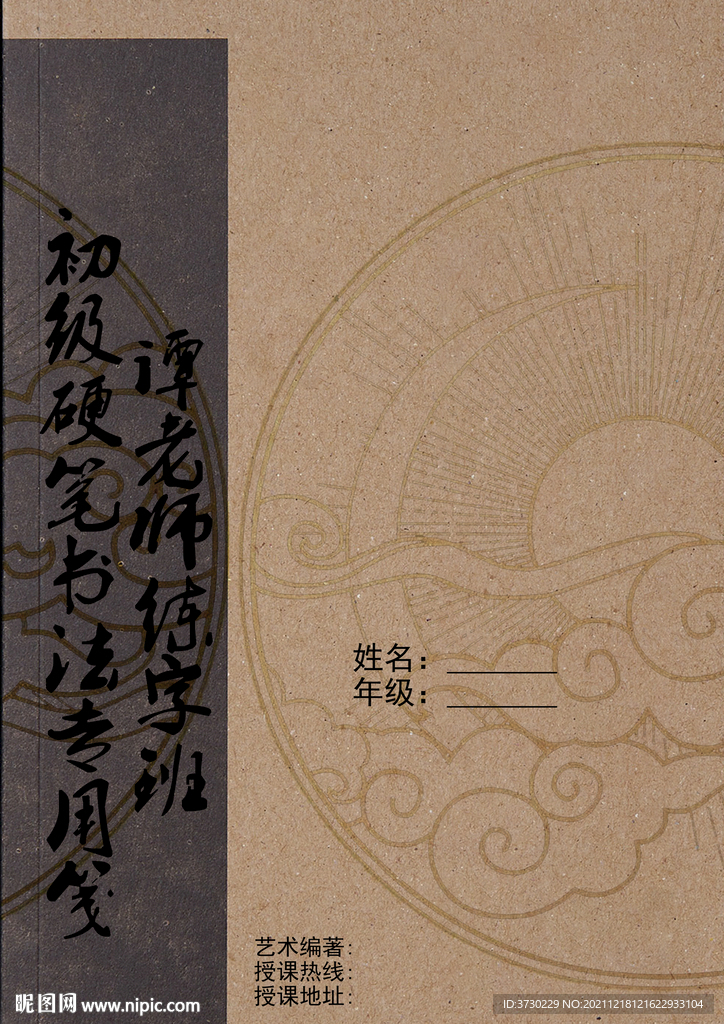 谭老师练字班
初级硬笔书法专用笺
姓名：________
年级：________
艺术编著：
授课热线：
授课地址：
昵图网 www.nipic.com
ID:3730229 NO:20211218121622933104